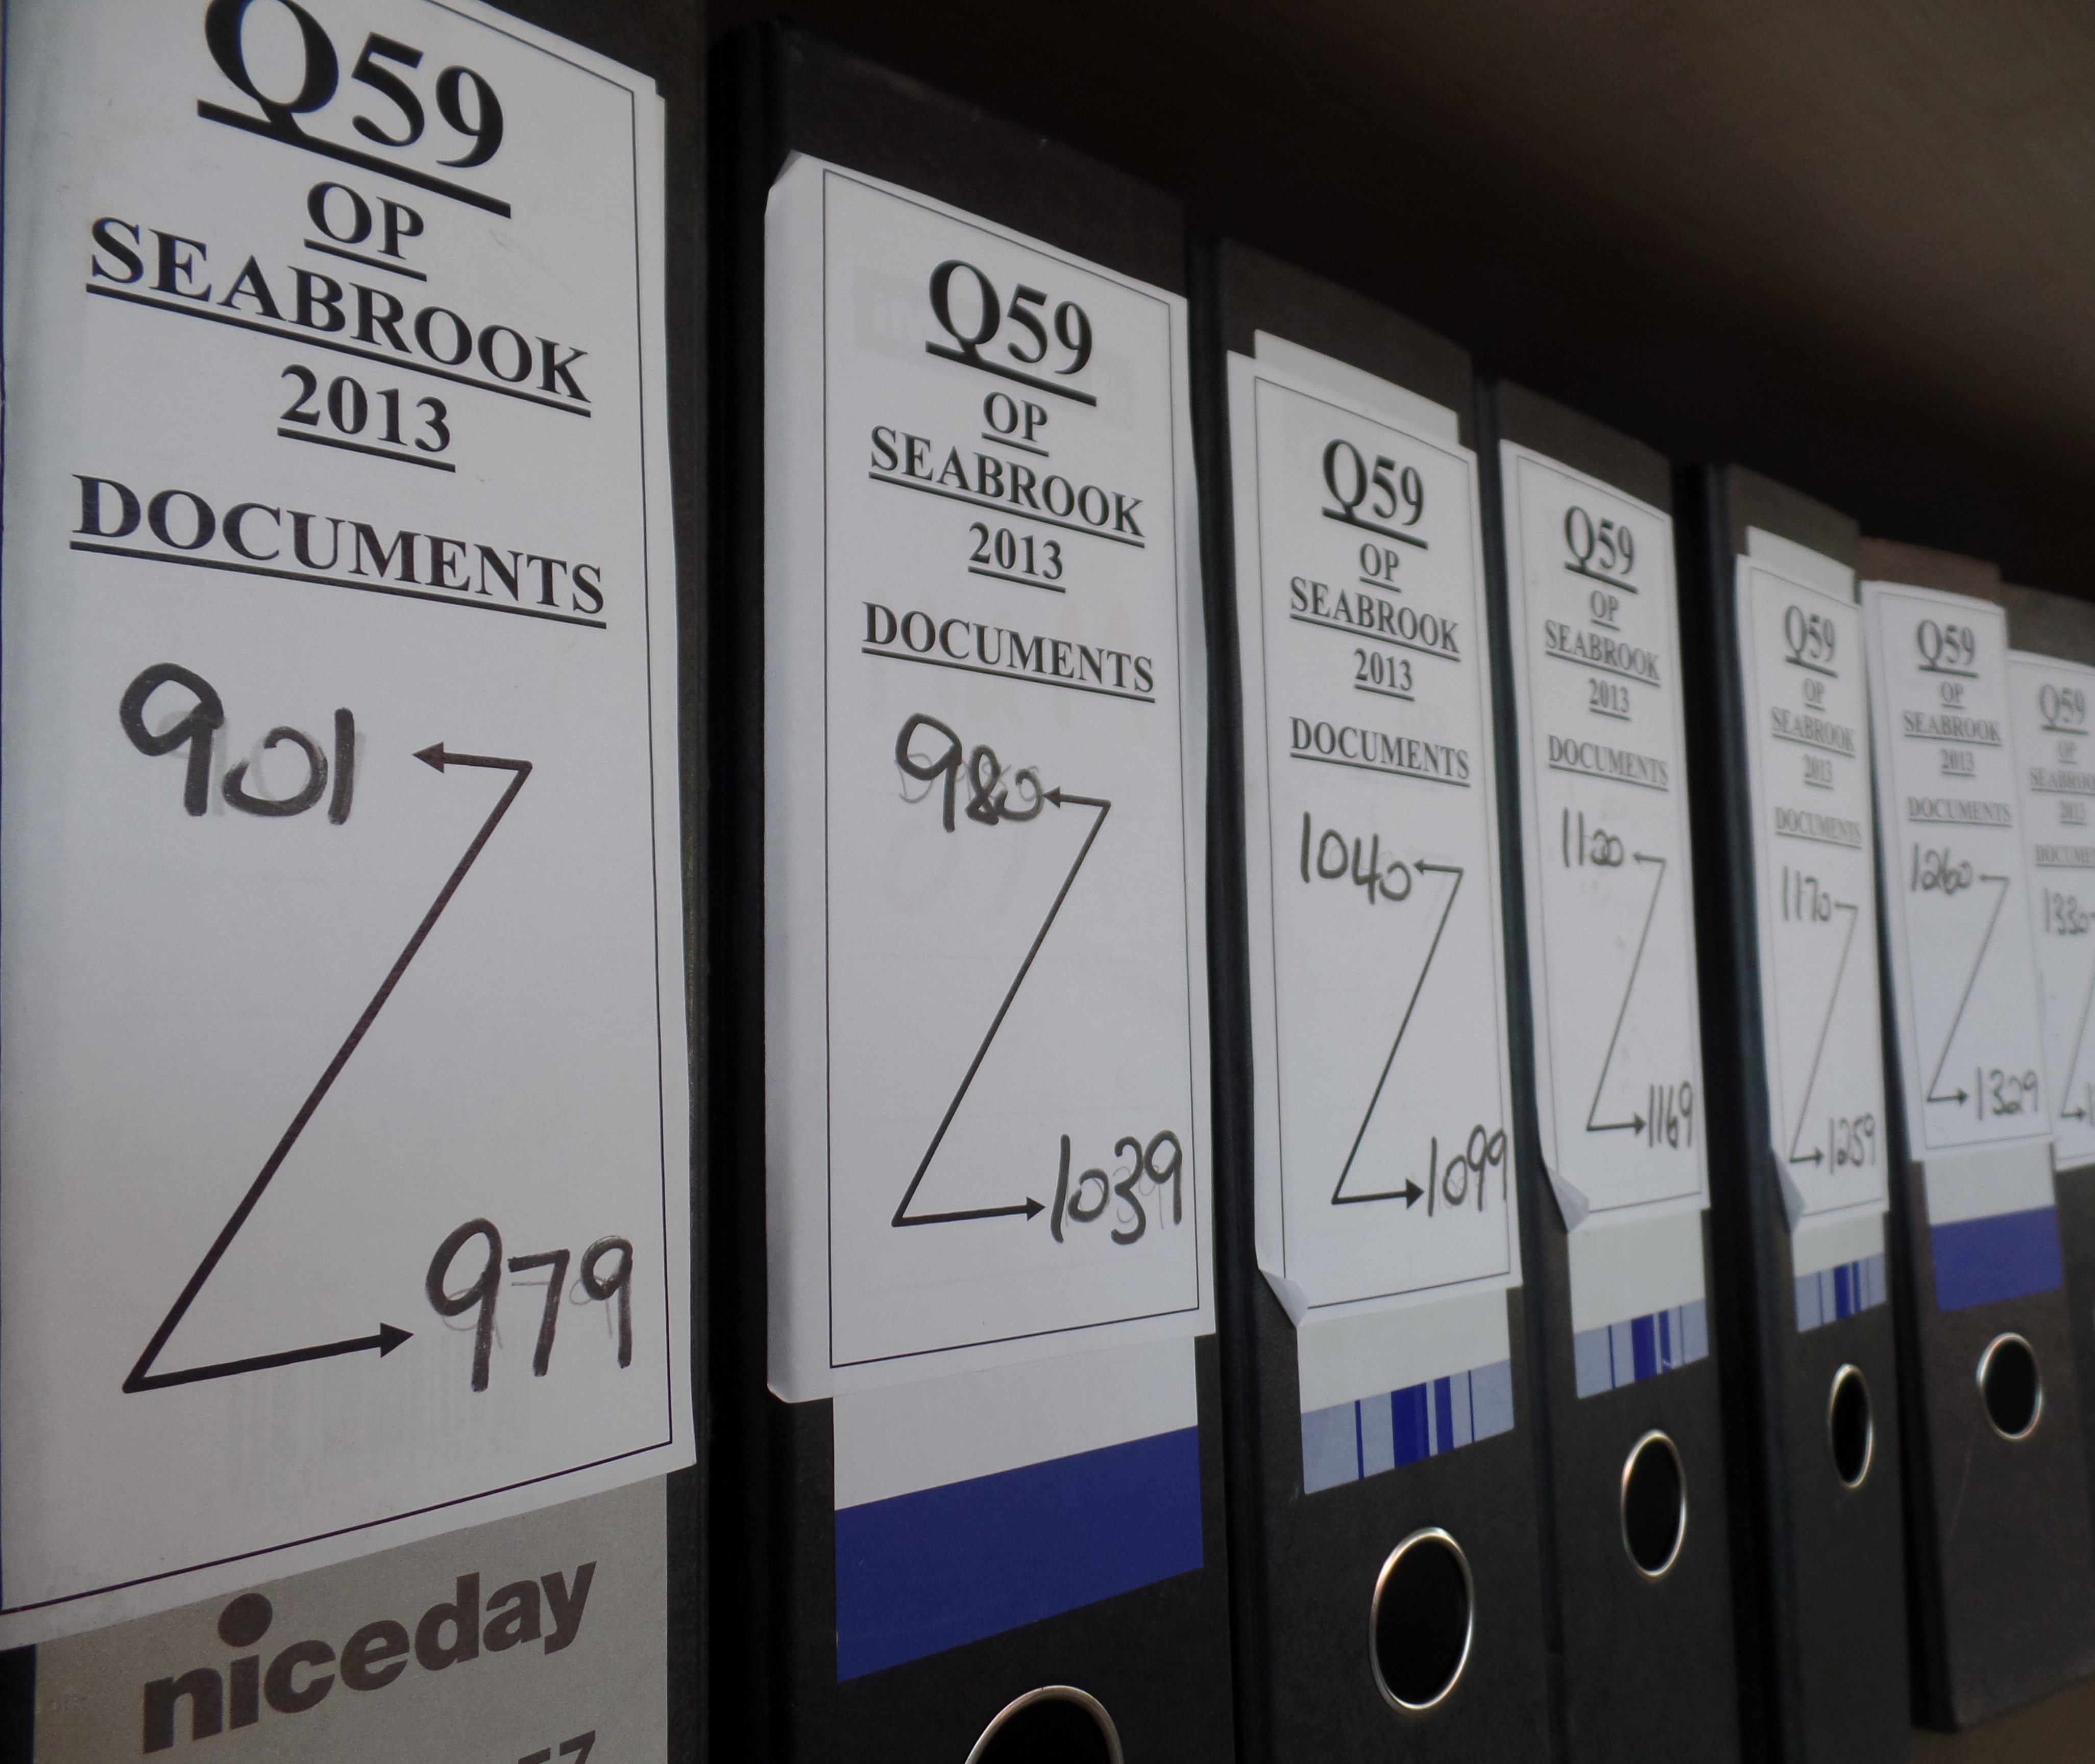 Q59
OP
SEABROOK
2013
DOCUMENTS
901
979
niceday
57
Q59
OP
SEABROOK
2013
DOCUMENTS
980
1039
Q59
OP
SEABROOK
2013
DOCUMENTS
1040
1099
Q59
OP
SEABROOK
2013
DOCUMENTS
1100
1169
Q59
OP
SEABROOK
2013
DOCUMENTS
1170
1259
Q59
OP
SEABROOK
2013
DOCUMENTS
1260
1329
Q59
OP
SEABROO
2013
DOCUME
1330